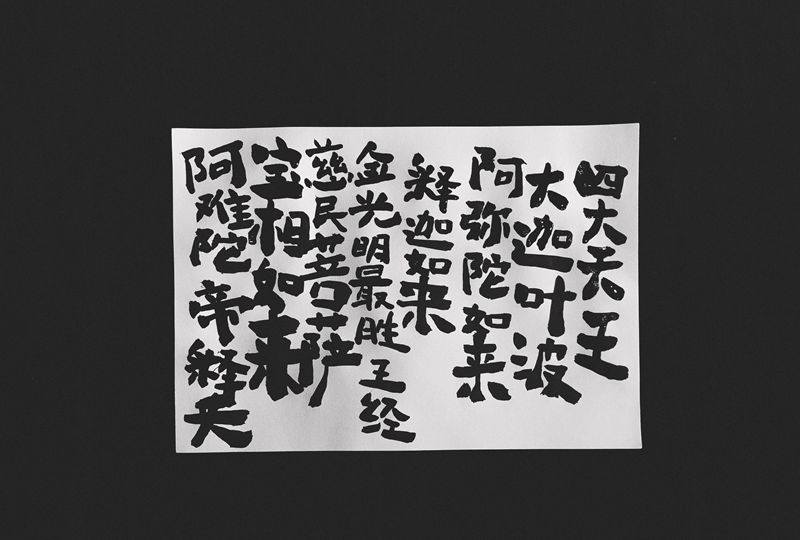 四大天王
大迦叶波
阿弥陀如来
释迦如来
金光明最胜王经
慈民菩萨
宝相如来
阿难陀帝释天